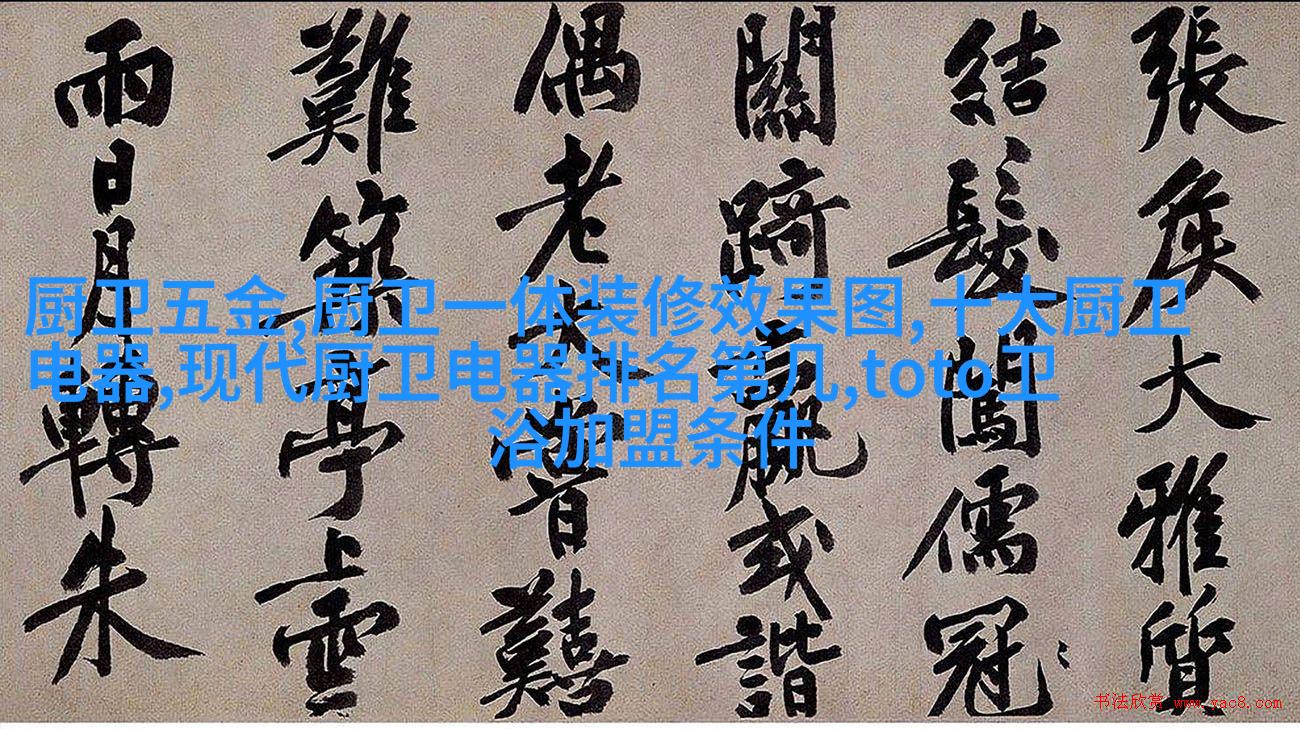 張侯大雅質
結髮闖儒冠
踦或諧
偶老大
難築亭上雲
雨日月轉朱
厨卫五金,厨卫一体装修效果图,十大厨卫
电器,现代厨卫电器排名第几,toto卫
浴加盟条件
书法欣赏 www.yac8.com